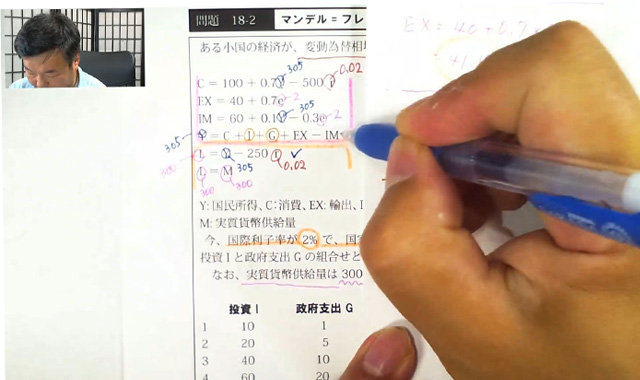 問題 18-2 マンデル=フレ
ある小国の経済が、変動為替相
305 0.02
C = 100 + 0.7Y − 500r
EX = 40 + 0.7e -2
305
IM = 60 + 0.1Y − 0.3e -2
305 Y = C + I + G + EX − IM
300 L = Y − 250r ✓
305 0.02
L = M
300 300
Y: 国民所得、C: 消費、EX: 輸出、I
M: 実質貨幣供給量
今、国際利子率が 2% で、国
投資 I と政府支出 G の組合せと
なお、実質貨幣供給量は 300
投資 I 政府支出 G
1 10 1
2 20 5
3 40 10
4 60 20
EX = 40 + 0.7